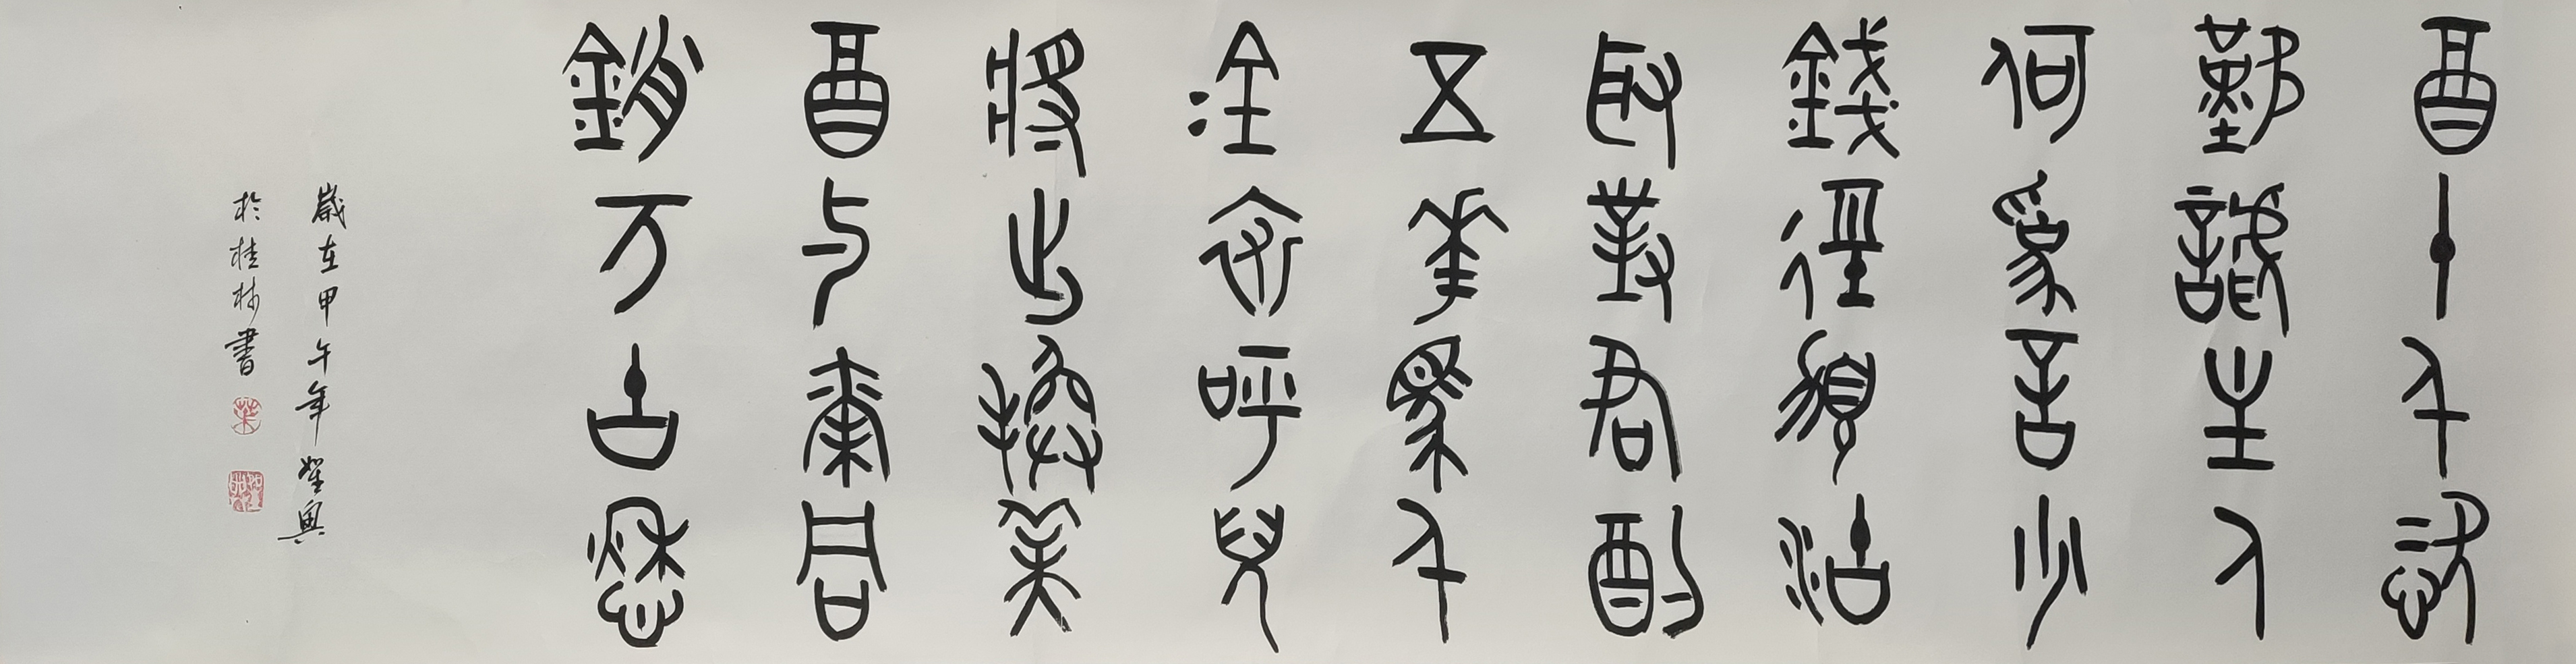 酒十千恣
歡謔主人
何為言少
錢徑須沽
取對君酌
五花馬千
金裘呼兒
將出換美
酒与爾同
銷万古愁
歲在甲午年
於桂林書